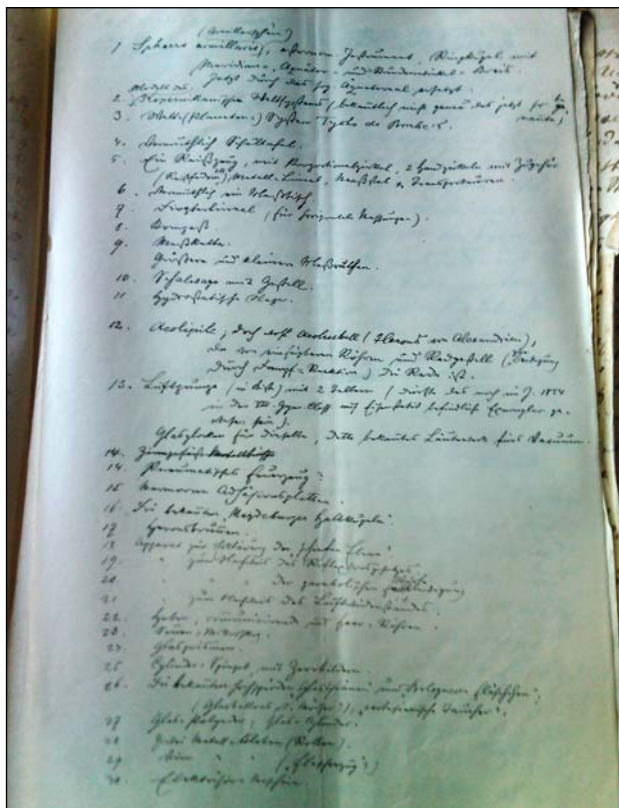 (Armillarsphäre)
1. Sphaera armillaris, astronom. Instrument. Ringkugel mit
Meridian-, Äquator- und Stundenwinkel-Kreis.
Jetzt durch das sog. Äquatoreal ersetzt.
Modell des
2. Kopernikanischen Weltsystems (bekanntlich nicht genau das jetzt so genannte)
3. Welt (Planeten) System Tycho de Brahe's.
4. Vermuthlich Schultafel.
5. Ein Reißzeug, mit Proportionalzirkel, 2 Handzirkeln mit Zugehör
(Reißfedern) Metall-Lineal, Maaßstab u. Transporteuren.
6. Vermuthlich ein Meßtisch.
7. Diopterlineal (für horizontale Messungen).
8. Kompaß.
9. Meßkette.
Größere und kleinere Meßruthen.
10. Schalwage mit Gestell.
11. Hydrostatische Wage.
12. Aeolipile, doch wohl Aeolusball (Herons von Alexandrien),
da von Röhren und Radgestell (Bewegung
durch Dampf-Reaktion) die Rede ist.
13. Luftpumpe (in) mit 2 Tellern (dürfte das noch im J. 1884
in der befindliche Exemplar gewesen sein).
Glasglocken für dieselbe, dto bekanntes Läutewerk fürs Vacuum.
14.
14. Pneumatisches Feuerzeug.
15. Marmorne Adhäsionsplatten.
16. Die bekannten "Magdeburger Halbkugeln".
17. Heronsbrunnen.
18. Apparat zur Erklärung der "schiefen Ebene".
19. " zum Nachweis des Reflexionsgesetzes.
20. " " der parabolischen Bewegung
21. " zum Nachweis des Luftwiderstandes.
22. Heber, communicierende und Haar-Röhren.
23. Sonnen-Mikroskop.
24. Glasprismen.
25. Cylinder-Spiegel, mit Zerrbildern.
26. Die bekannten "Glasthränen" und "Bologneser Fläschchen",
"cartesianische Taucher".
27. Glas-, Glas-Cylinder.
28. Zwei Metall-Kloben (Rollen).
29. " " ("Flaschenzug")
30. Elektrisier-Maschine.